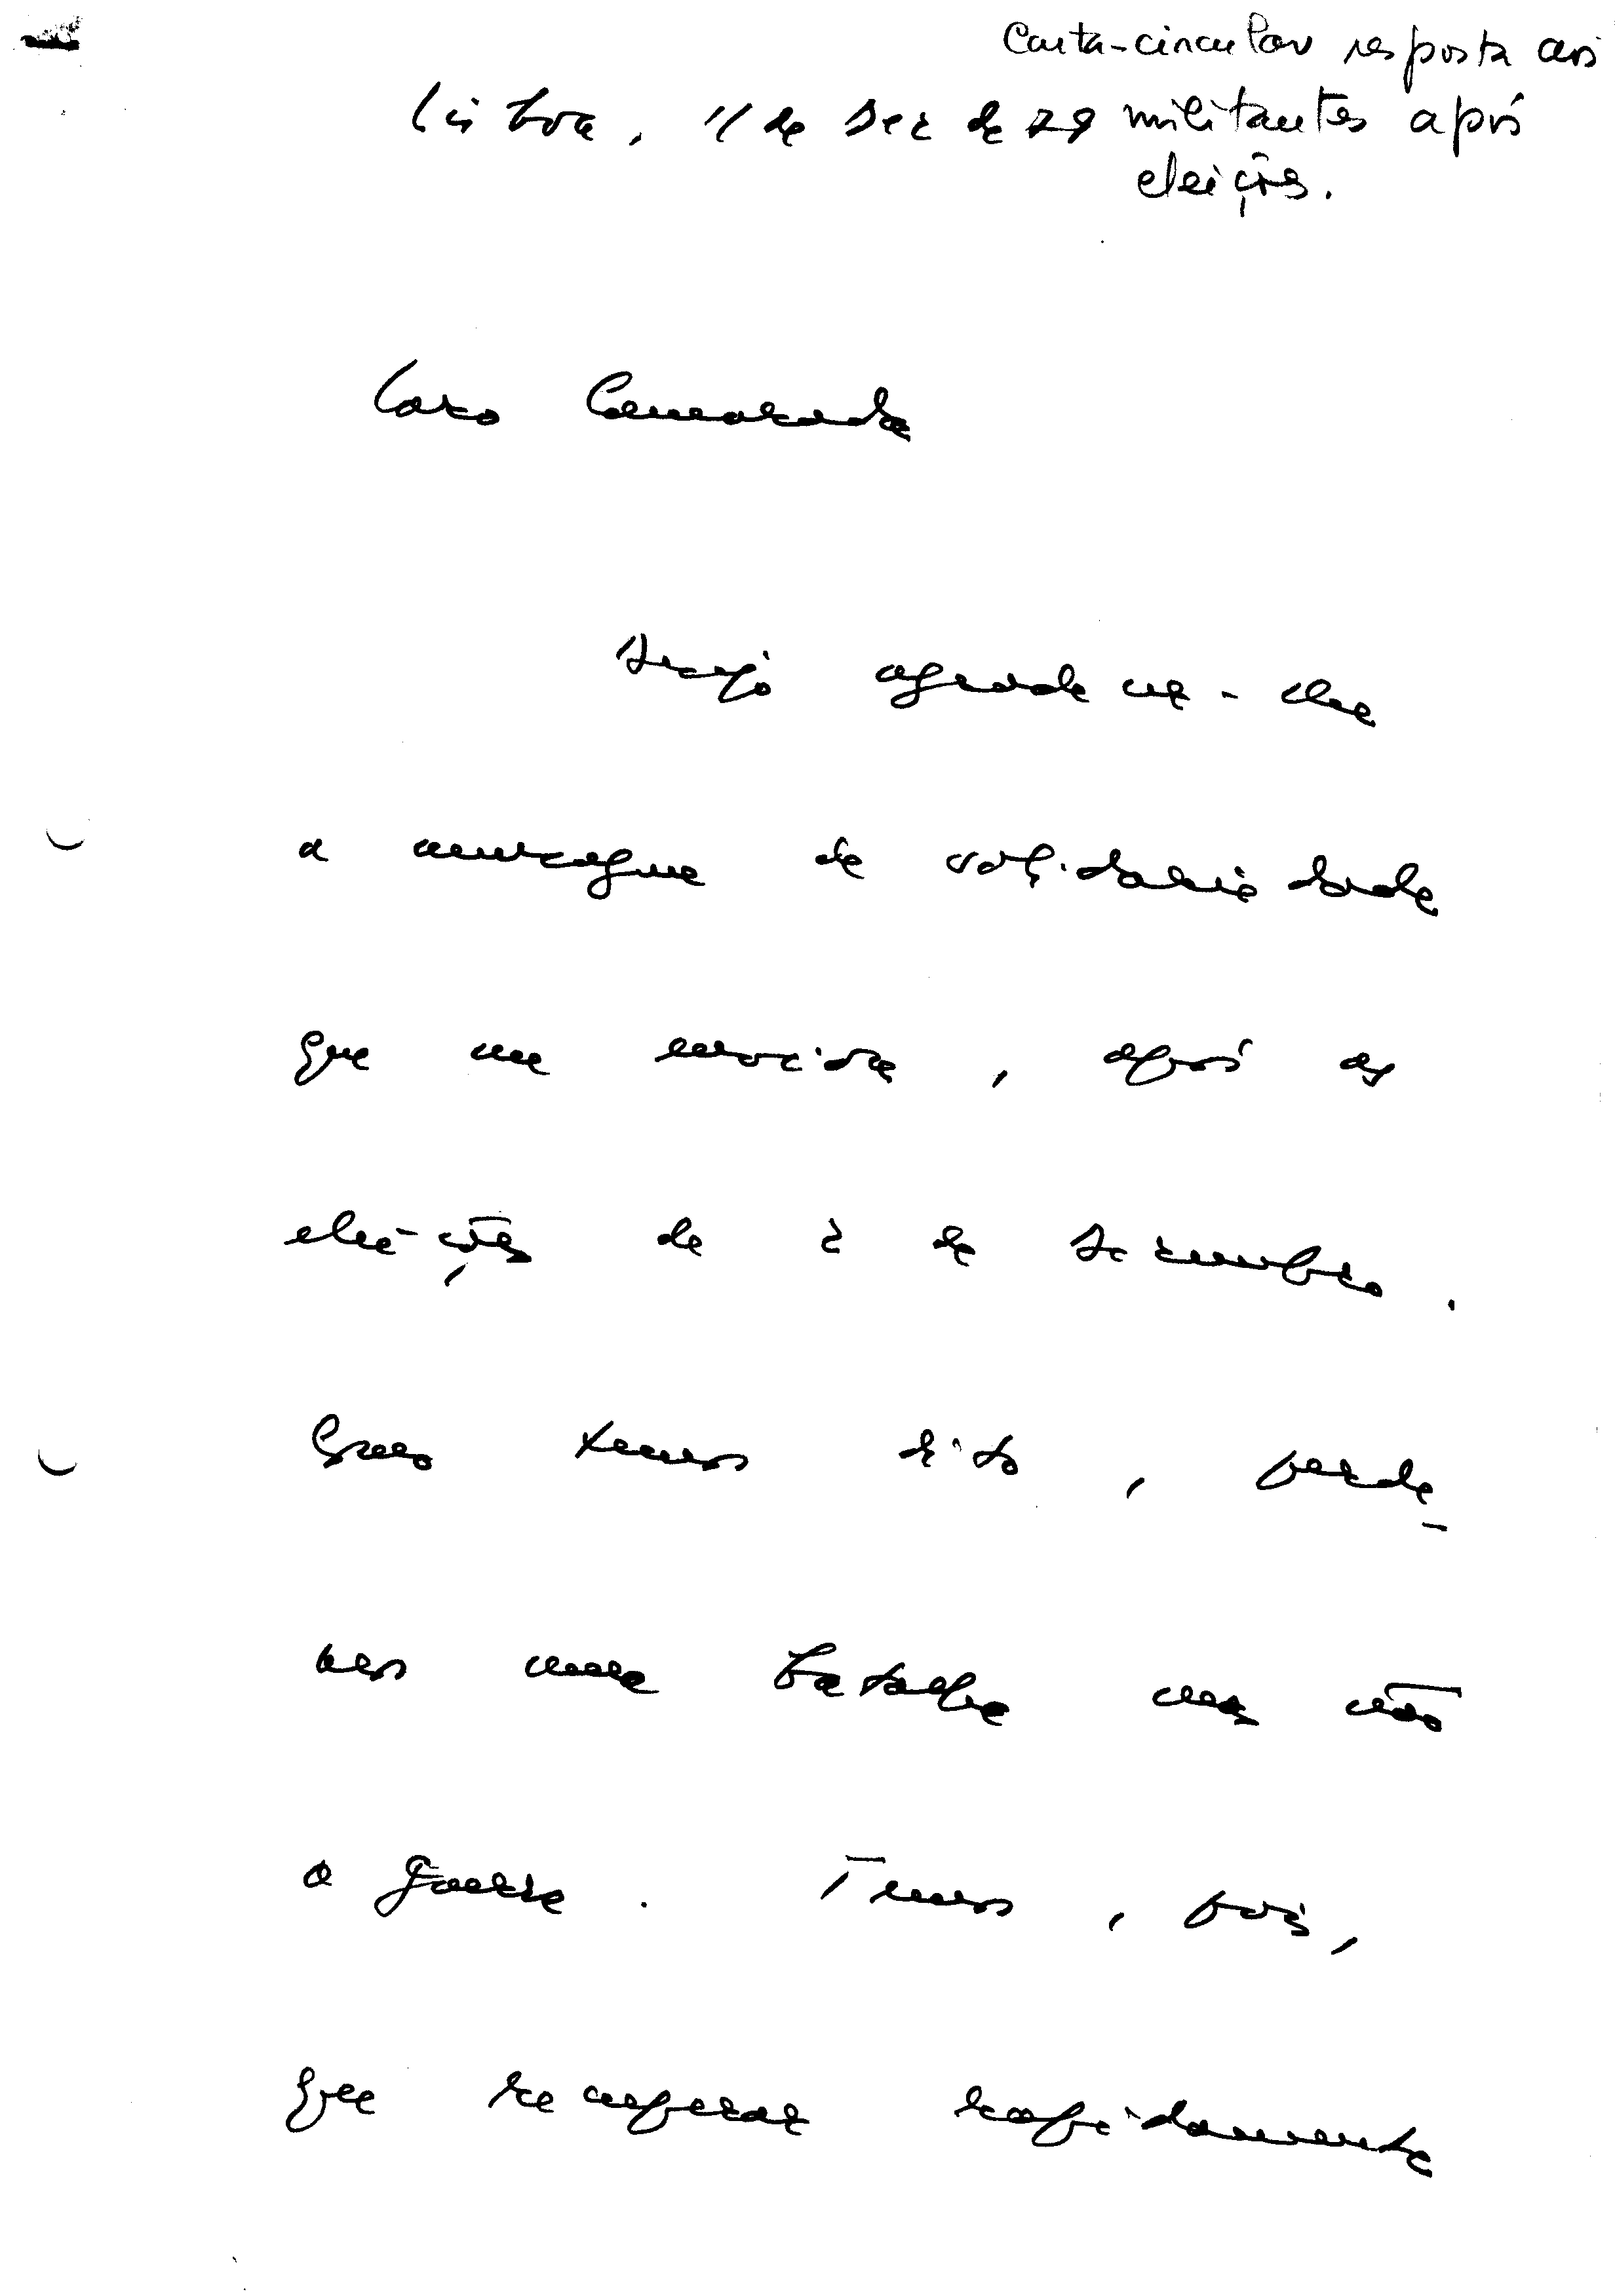 Carta-circular resposta aos
militantes após
eleições.
Lisboa, 11 de Dez de 79
Caro Camarada
Desejo agradecer-lhe
a mensagem de solidariedade
que me enviou, após as
eleições de 2 de Dezembro.
Como temos dito, perde-
mos uma batalha mas não
a guerra. Temos, pois,
que recuperar rapidamente